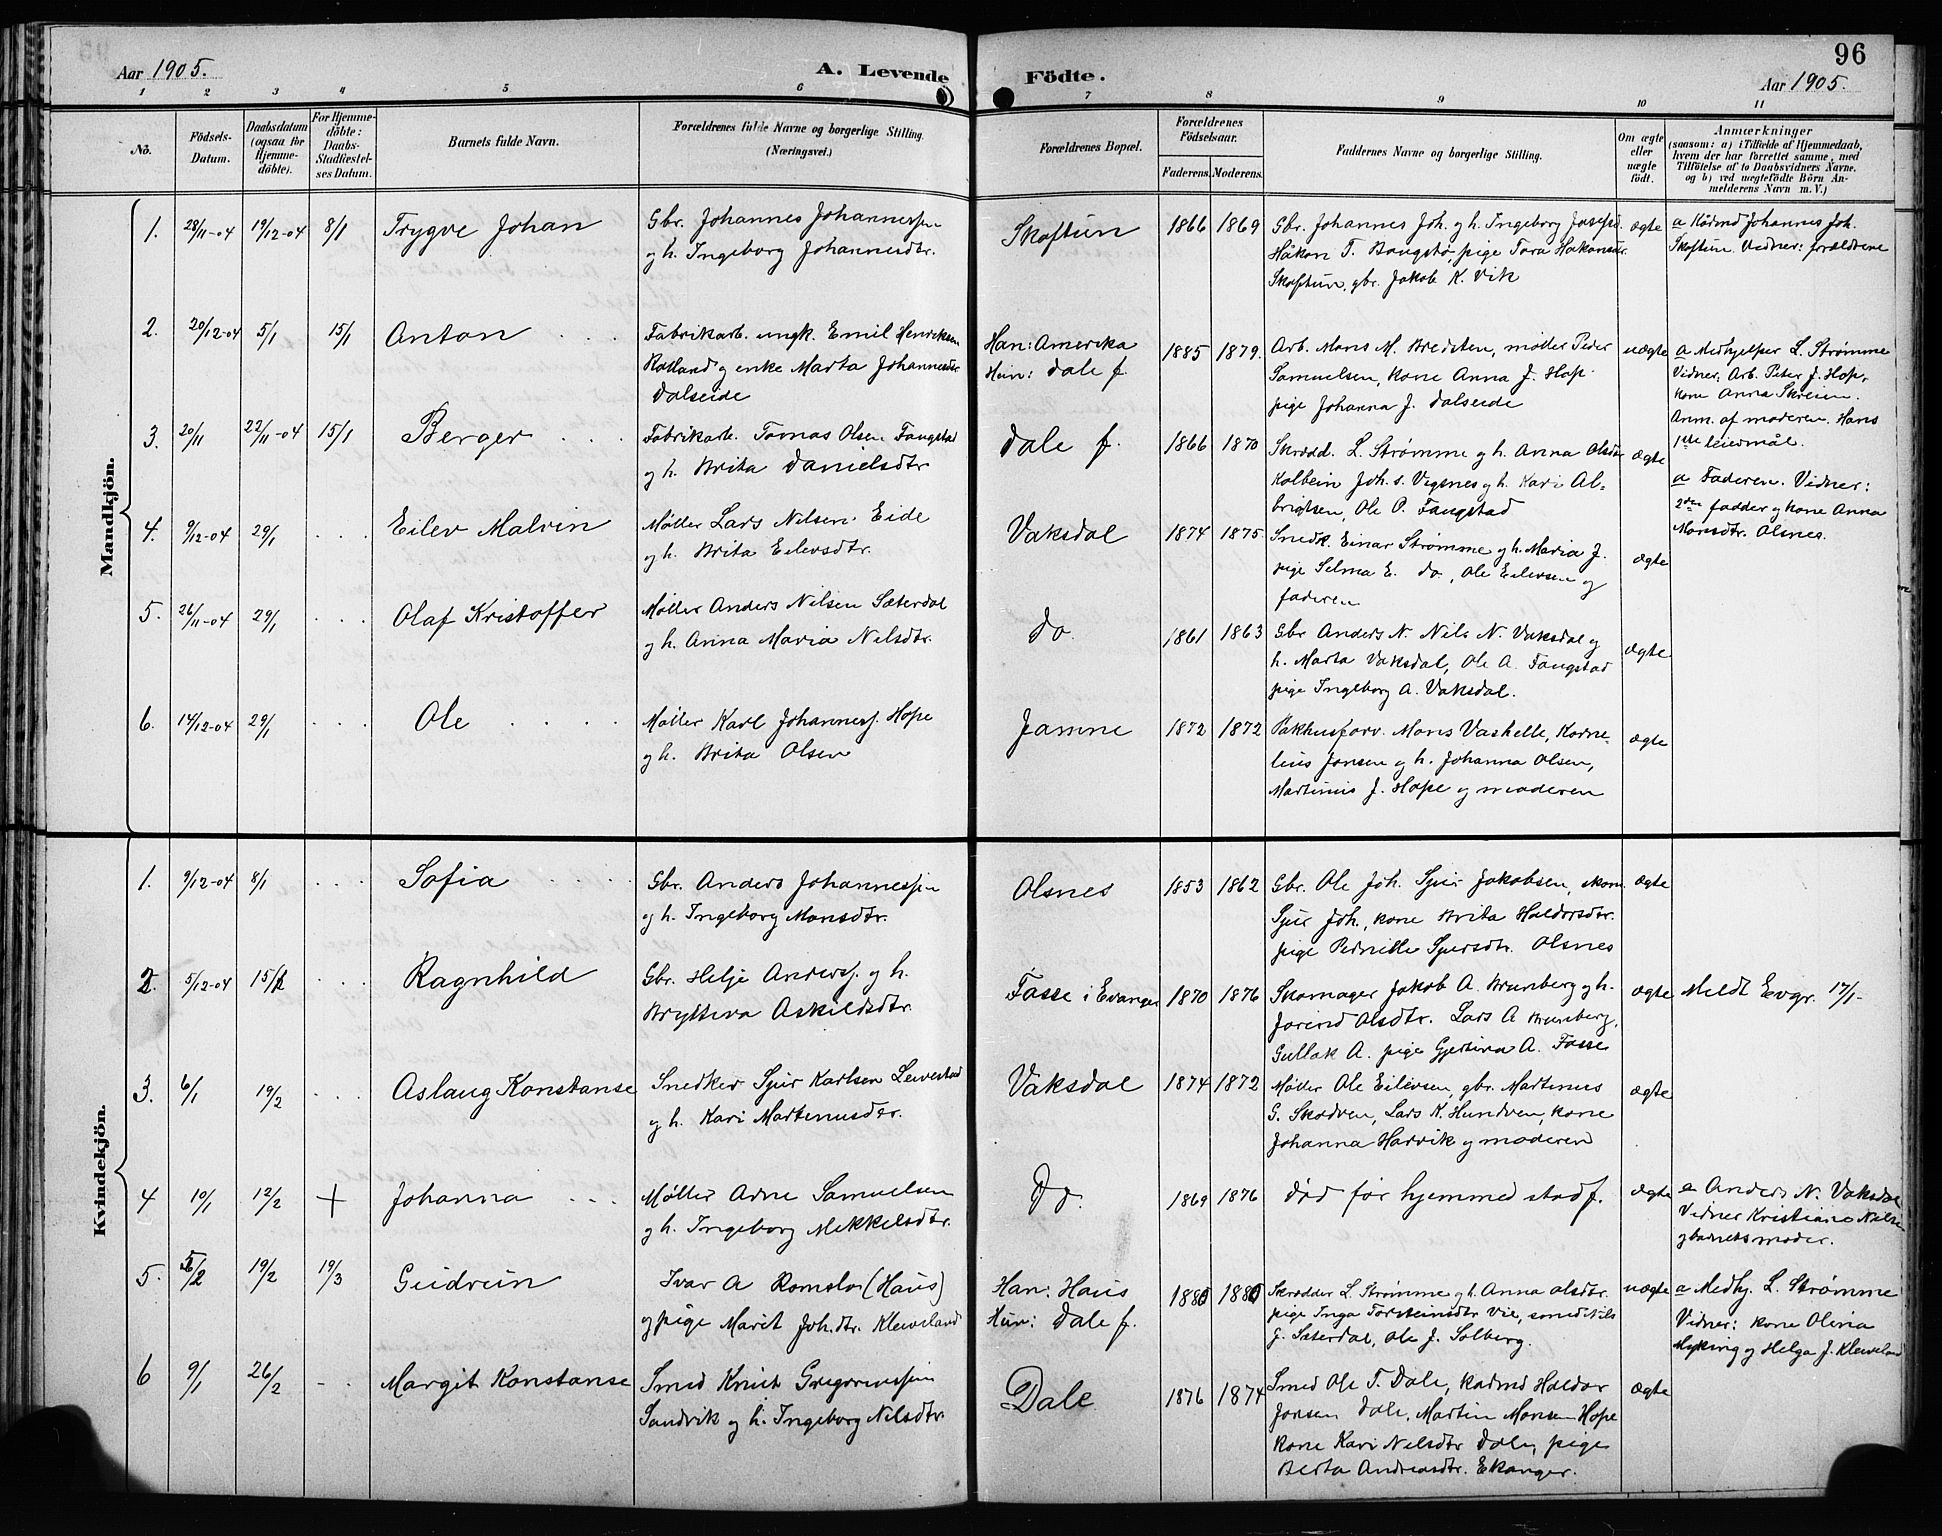 96
Aar 1905. A. Levende Födte. Aar 1905.
1 2 3 4 5 6 7 8 9 10 11
No.
Födsels-
Datum.
Daabsdatum
(ogsaa for
Hjemme-
döbte).
For Hjemme-
döbte:
Daabs-
Stadfæstel-
ses Datum.
Barnets fulde Navn.
Forældrenes fulde Navne og borgerlige Stilling.
(Næringsvei.)
Forældrenes Bopæl.
Forældrenes
Födselsaar.
Faderens. Moderens.
Faddernes Navne og borgerlige Stilling.
Om ægte
eller
uægte
födt.
Anmærkninger
(saasom: a) i Tilfælde af Hjemmedaab,
hvem der har forrettet samme, med
Tilföielse af to Daabsvidners Navne.
og b) ved uægtefödte Börn An-
melderens Navn m. V.)
Mandkjön.
1. 28/11-04 19/12-04 8/1 Trygve Johan
Gbr. Johannes Johannessen
og h. Ingeborg Johannesdtr.
Skoftun 1866 1869
Gbr. Johannes Joh. og h. Ingeborg Josefsd.
Håkon T. Bougstø, pige Tora Hakonsdtr.
Skoftun, gbr. Jakob K. Vik
ægte
a Kårmd Johannes Joh.
Skoftun. Vidner: forældrene
2. 20/12-04 5/1 15/1 Anton
Fabrikarb. ungk. Emil Henriksen
Rolland og enke Marta Johannesdtr
Dalseide
Han: Amerika
Hun: Dale f.
1885 1879.
Arb. Mons M. Bredsten, møller Peder
Samuelsen, kone Anna J. Hop.
pige Johanna J. Dalseide
uægte
a Medhjelper L. Strømme
Vidner: Arb. Peter J. Hop,
kone Anna Skreien.
Anm. af moderen. Hans
1ste leiermål.
3. 20/11 22/11-04 15/1 Berger
Fabrikarb. Tomas Olsen Fangstad
og h. Brita Danielsdtr
Dale f. 1866 1870
Skrædd. L. Strømme og h. Anna Olsdtr
Kolbein Joh. s. Vigsnes og h. Kari Al-
brigtsen, Ole P. Fangstad
ægte
a Faderen. Vidner:
2den fadder og kone Anna
Monsdtr. Olsnes.
4. 9/12-04 29/1 Eilev Malvin
Møller Lars Nilsen Eide
og h. Brita Eilevsdtr.
Vaksdal 1874 1875.
Snedk. Einar Strømme og h. Maria J.
pige Selma E. do, Ole Eilevsen og
faderen
ægte
5. 26/11-04 29/1 Olaf Kristoffer
Møller Anders Nilsen Sæterdal
og h. Anna Maria Nilsdtr.
do. 1861 1863
Gbr Anders N. Nils N. Vaksdal og
h. Marta Vaksdal, Ole A. Fangstad
pige Ingeborg A. Vaksdal.
ægte
6. 14/12-04 29/1 Ole
Møller Karl Johanness. Hope
og h. Brita Olsen
Jamne 1872 1872
Pakhusforv. Mons Vashelle, Korne-
lius Jonsen og h. Johanna Olsen,
Martinus J. Hope og moderen
ægte
Kvindekjön.
1. 9/12-04 8/1 Sofia
Gbr. Anders Johannessen
og h. Ingeborg Monsdtr.
Olsnes 1853 1862
Gbr. Ole Joh. Sjur Jakobsen, skom.
Sjur Joh., kone Brita Haldorsdtr.
pige Pernille Sjursdtr. Olsnes
ægte
2. 5/12-04 15/1 Ragnhild
Gbr. Helje Anderss. og h.
Brytteva Askildsdtr.
Fosse i Evanger 1870 1876
Skomager Jakob A. Brunberg og h.
Jorind Olsdtr. Lars A Brunberg,
Gullak A. pige Gjertina A. Fosse
ægte
Meldt Evgr. 17/1-
3. 6/1 19/2 Aslaug Konstanse
Snedker Sjur Karlsen Leirestad
og h. Kari Martinusdtr.
Vaksdal 1874 1872
Møller Ole Eilevsen, gbr. Martinus
G. Skodven, Lars K. Hundven, kone
Johanna Harvik og moderen
ægte
4 10/1 12/2 + Johanna
Møller Arne Samuelsen
og h. Ingeborg Mikkelsdtr.
Do. 1869 1876
død før hjemmed stadf.
ægte
a Anders N. Vaksdal
Vidner Kristiane Nilsen
og barnets moder.
5. 5/2 19/2 19/3 Gudrun
Ivar A Romslo (Haus)
og pige Marit Joh.dtr. Kleiveland
Han: Haus
Hun: Dale f.
1880 1880
Skrædder L Strømme og h. Anna Olsdtr.
pige Inga Torsteinsdtr Vie, smed Nils
J. Sæterdal, Ole J. Solberg.
uægte
a Medhj. L. Strømme
Vidner: kone Olina
Myking og Helga J. Kleiveland
6 9/1 26/2 Margit Konstanse
Smed Knut Gregoriussen
Sandvik og h. Ingeborg Nilsdtr.
Dale 1876 1874
Smed Ole T. Dale, Kaarmd Haldor
Jonsen Dale, Martin Monsen Hope
kone Kari Nilsdtr Dale, pige
Berta Andreasdtr. Ekanger.
ægte